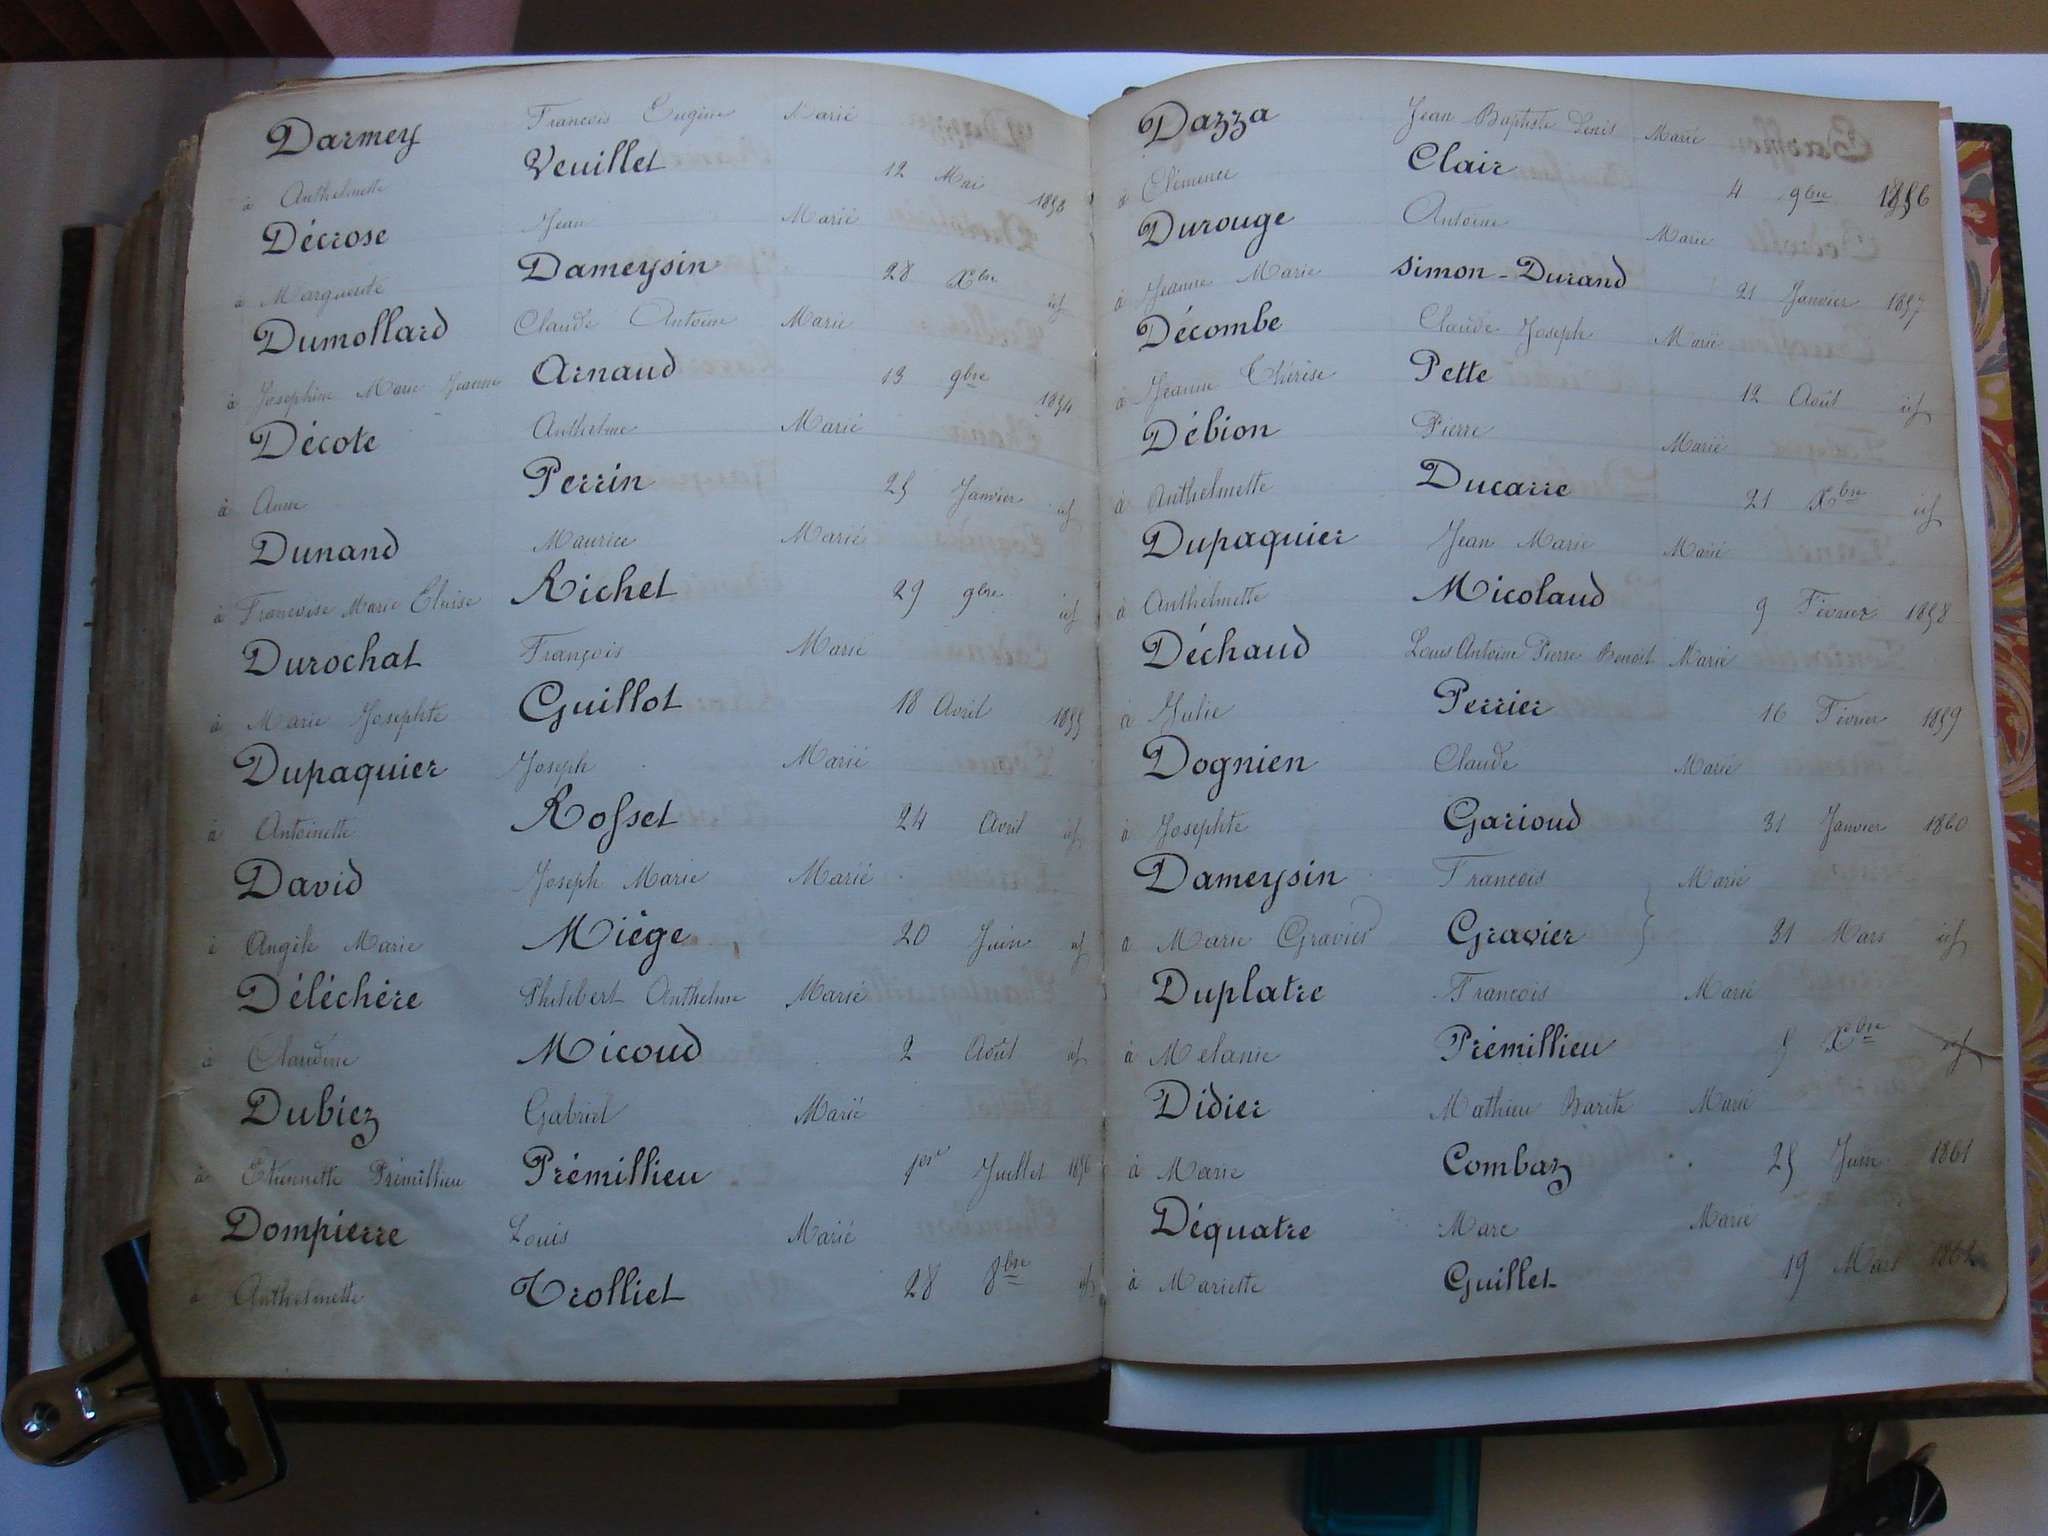 Darmey François Eugène Marié
à Anthelmette Veuillet 12 Mai 1853
Décrose Jean Marié
à Marguerite Dameysin 28 Xbre id
Dumollard Claude Antoine Marié
à Josephine Marie Jeanne Arnaud 13 9bre 1854
Décote Anthelme Marié
à Anne Perrin 25 Janvier id
Dunand Maurice Marié
à Françoise Marie Eloise Richet 29 9bre id
Durochat François Marié
à Marie Josephte Guillot 18 Avril 1855
Dupaquier Joseph Marié
à Antoinette Rosset 24 Avril id
David Joseph Marie Marié
à Angèle Marie Miège 20 Juin id
Déléchère Philibert Anthelme Marié
à Claudine Micoud 2 Août id
Dubiez Gabriel Marié
à Etiennette Prémillieu Prémillieu 1er Juillet 1856
Dompierre Louis Marié
à Anthelmette Trolliet 28 8bre id
Dazza Jean Baptiste Denis Marié
à Clémence Clair 4 9bre 1856
Durouge Antoine Marié
à Jeanne Marie Simon-Durand 21 Janvier 1857
Décombe Claude Joseph Marié
à Jeanne Thérèse Pette 12 Août id
Débion Pierre Marié
à Anthelmette Ducarre 21 Xbre id
Dupaquier Jean Marie Marié
à Anthelmette Micolaud 9 Février 1858
Déchaud Louis Antoine Pierre Benoit Marié
à Julie Perrier 16 Février 1859
Dognien Claude Marié
à Josephte Garioud 31 Janvier 1860
Dameysin François Marié
à Marie Gravier Gravier 31 Mars id
Duplatre François Marié
à Melanie Prémillieu 5 Xbre id
Didier Mathieu Marié
à Marie Combaz 25 Juin 1861
Déquatre Marc Marié
à Mariette Guillet 19 Mars 1862